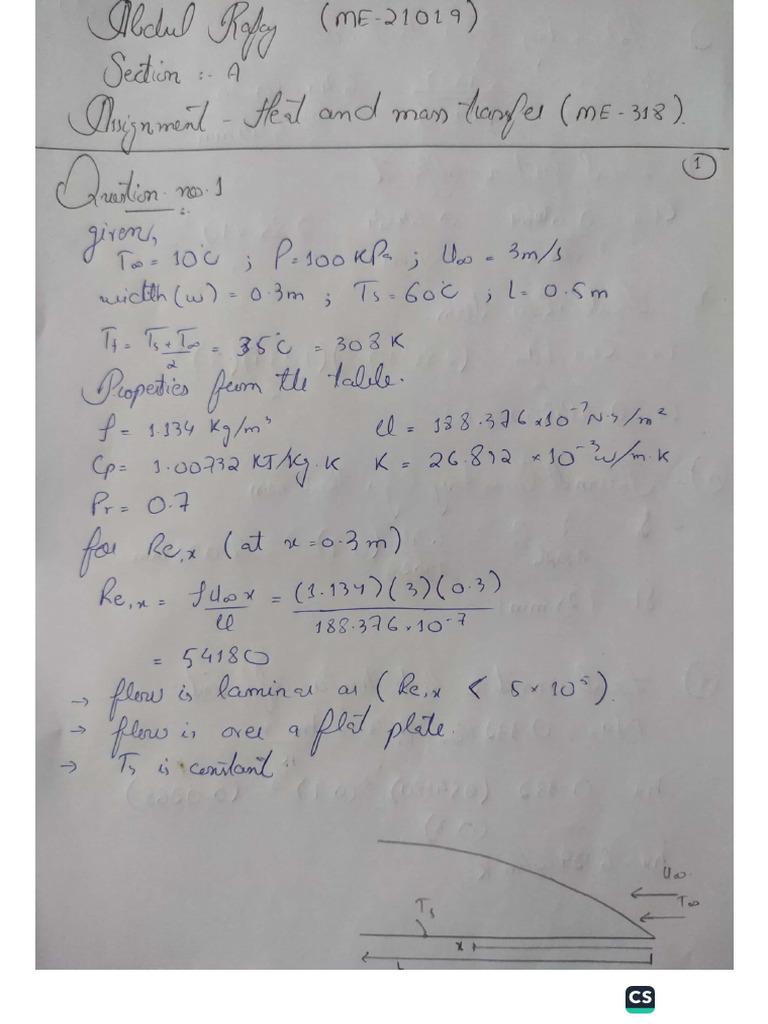 Abdul Rafay (ME-21019)
Section :- A
Assignment - Heat and mass transfer (ME-318).
1
Question no. 1
given,
T∞ = 10°C ; P = 100 KPa ; U∞ = 3m/s
width (w) = 0.3m ; Ts = 60°C ; L = 0.5m
Tf = Ts + T∞ / 2 = 35°C = 308 K
Properties from the table.
ρ = 1.134 Kg/m³ μ = 188.376 × 10⁻⁷ N.s/m²
Cp = 1.00732 KJ/Kg.K K = 26.892 × 10⁻³ w/m.K
Pr = 0.7
for Re,x (at x = 0.3m)
Re,x = ρU∞x / μ = (1.134)(3)(0.3) / 188.376 × 10⁻⁷
= 54180
→ flow is laminar as (Re,x < 5 × 10⁵).
→ flow is over a flat plate.
→ Ts is constant
U∞
T∞
Ts
x
L
CS